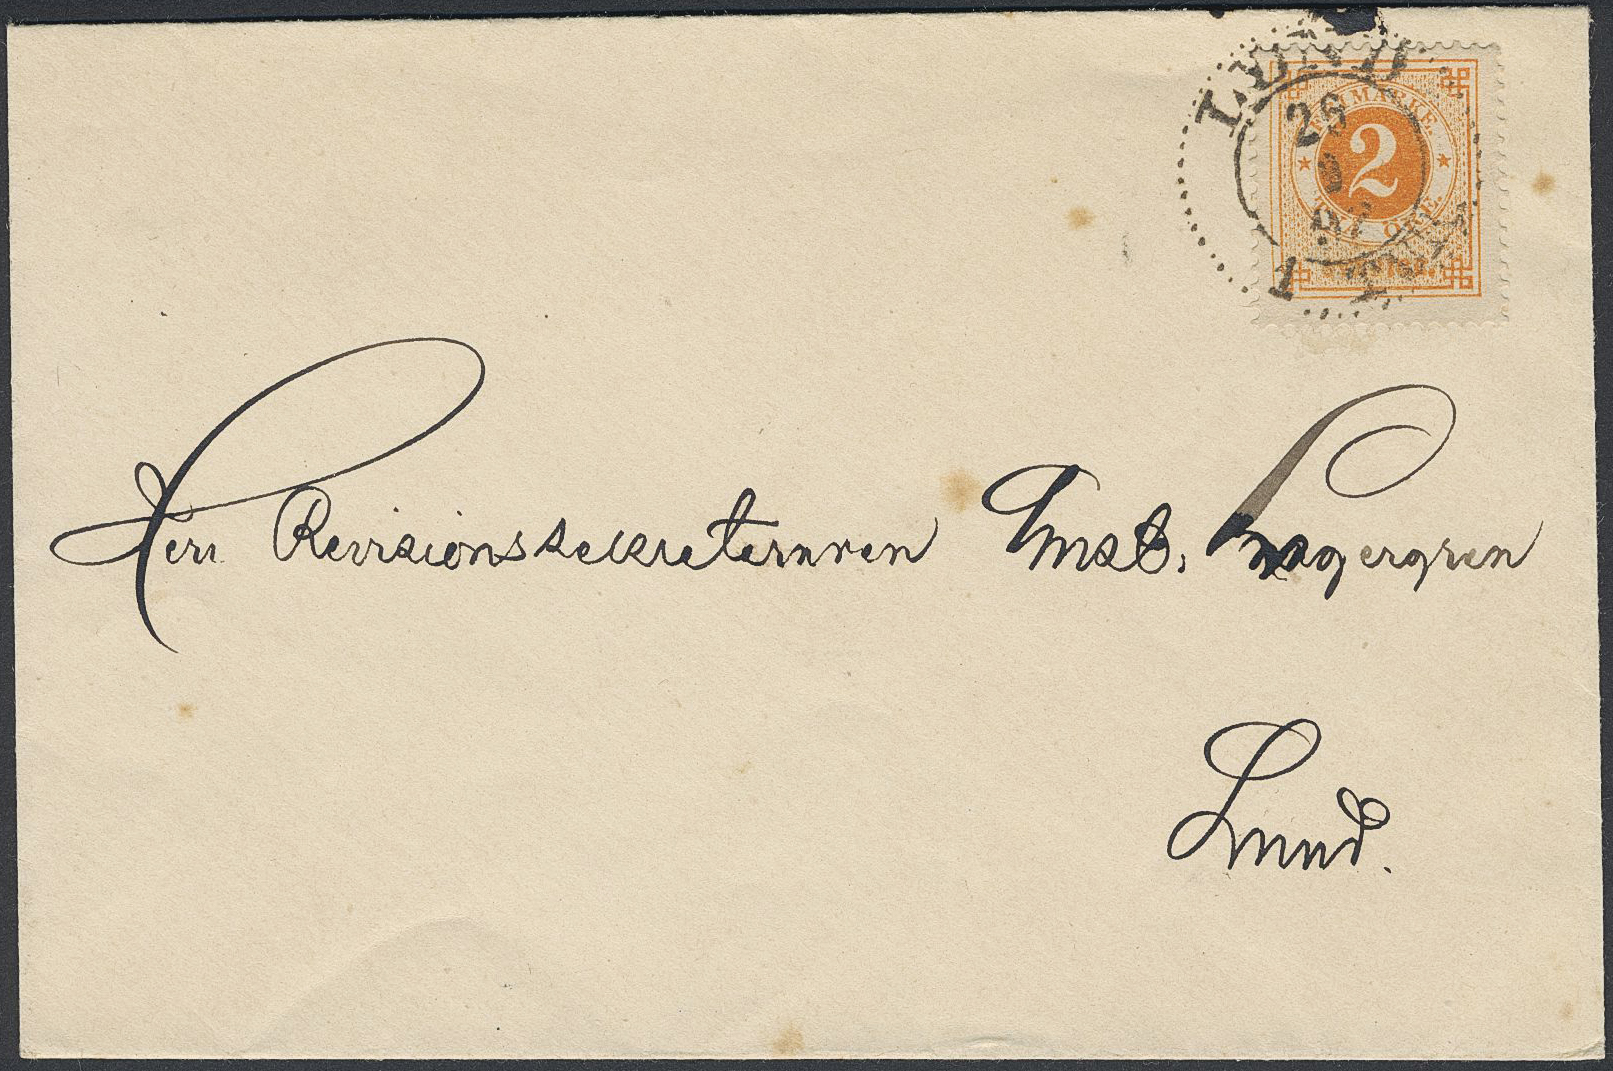 LUND
26
2
FRIMARKE.
TVÅ ÖRE.
1
Herr Revisionssekreteraren Gust. Lagergren
Lund.